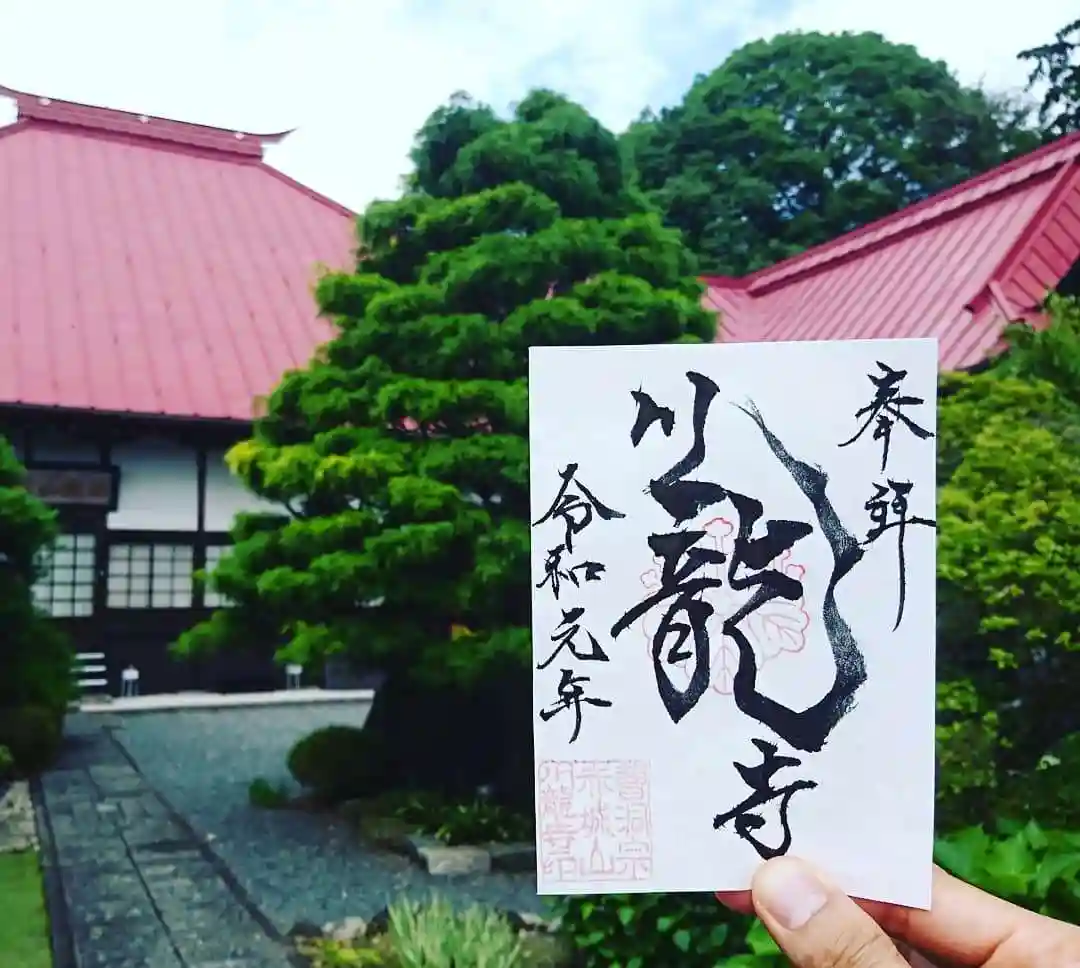 奉拝
川龍寺
令和元年
曹洞宗
赤城山
川龍寺印